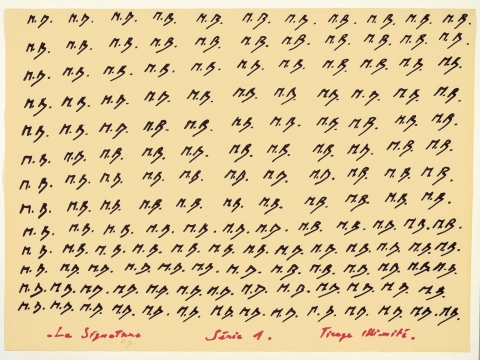 M.B. M.B. M.B. M.B. M.B. M.B. M.B. M.B. M.B. M.B. M.B.
M.B. M.B. M.B. M.B. M.B. M.B. M.B. M.B. M.B. M.B. M.B.
M.B. M.B. M.B. M.B. M.B. M.B. M.B. M.B. M.B. M.B. M.B.
M.B. M.B. M.B. M.B. M.B. M.B. M.B. M.B. M.B. M.B. M.B.
M.B. M.B. M.B. M.B. M.B. M.B. M.B. M.B. M.B. M.B. M.B.
M.B. M.B. M.B. M.B. M.B. M.B. M.B. M.B. M.B. M.B. M.B.
M.B. M.B. M.B. M.B. M.B. M.B. M.B. M.B. M.B. M.B. M.B.
M.B. M.B. M.B. M.B. M.B. M.B. M.B. M.B. M.B. M.B. M.B.
M.B. M.B. M.B. M.B. M.B. M.B. M.B. M.B. M.B. M.B. M.B. M.B. M.B.
M.B. M.B. M.B. M.B. M.B. M.B. M.B. M.B. M.B. M.B. M.B. M.B. M.B.
M.B. M.B. M.B. M.B. M.B. M.B. M.B. M.B. M.B. M.B. M.B. M.B. M.B.
M.B. M.B. M.B. M.B. M.B. M.B. M.B. M.B. M.B. M.B. M.B. M.B. M.B.
M.B. M.B. M.B. M.B. M.B. M.B. M.B. M.B. M.B. M.B. M.B. M.B. M.B. M.B.
La Signature Série 1. Tirage illimité.